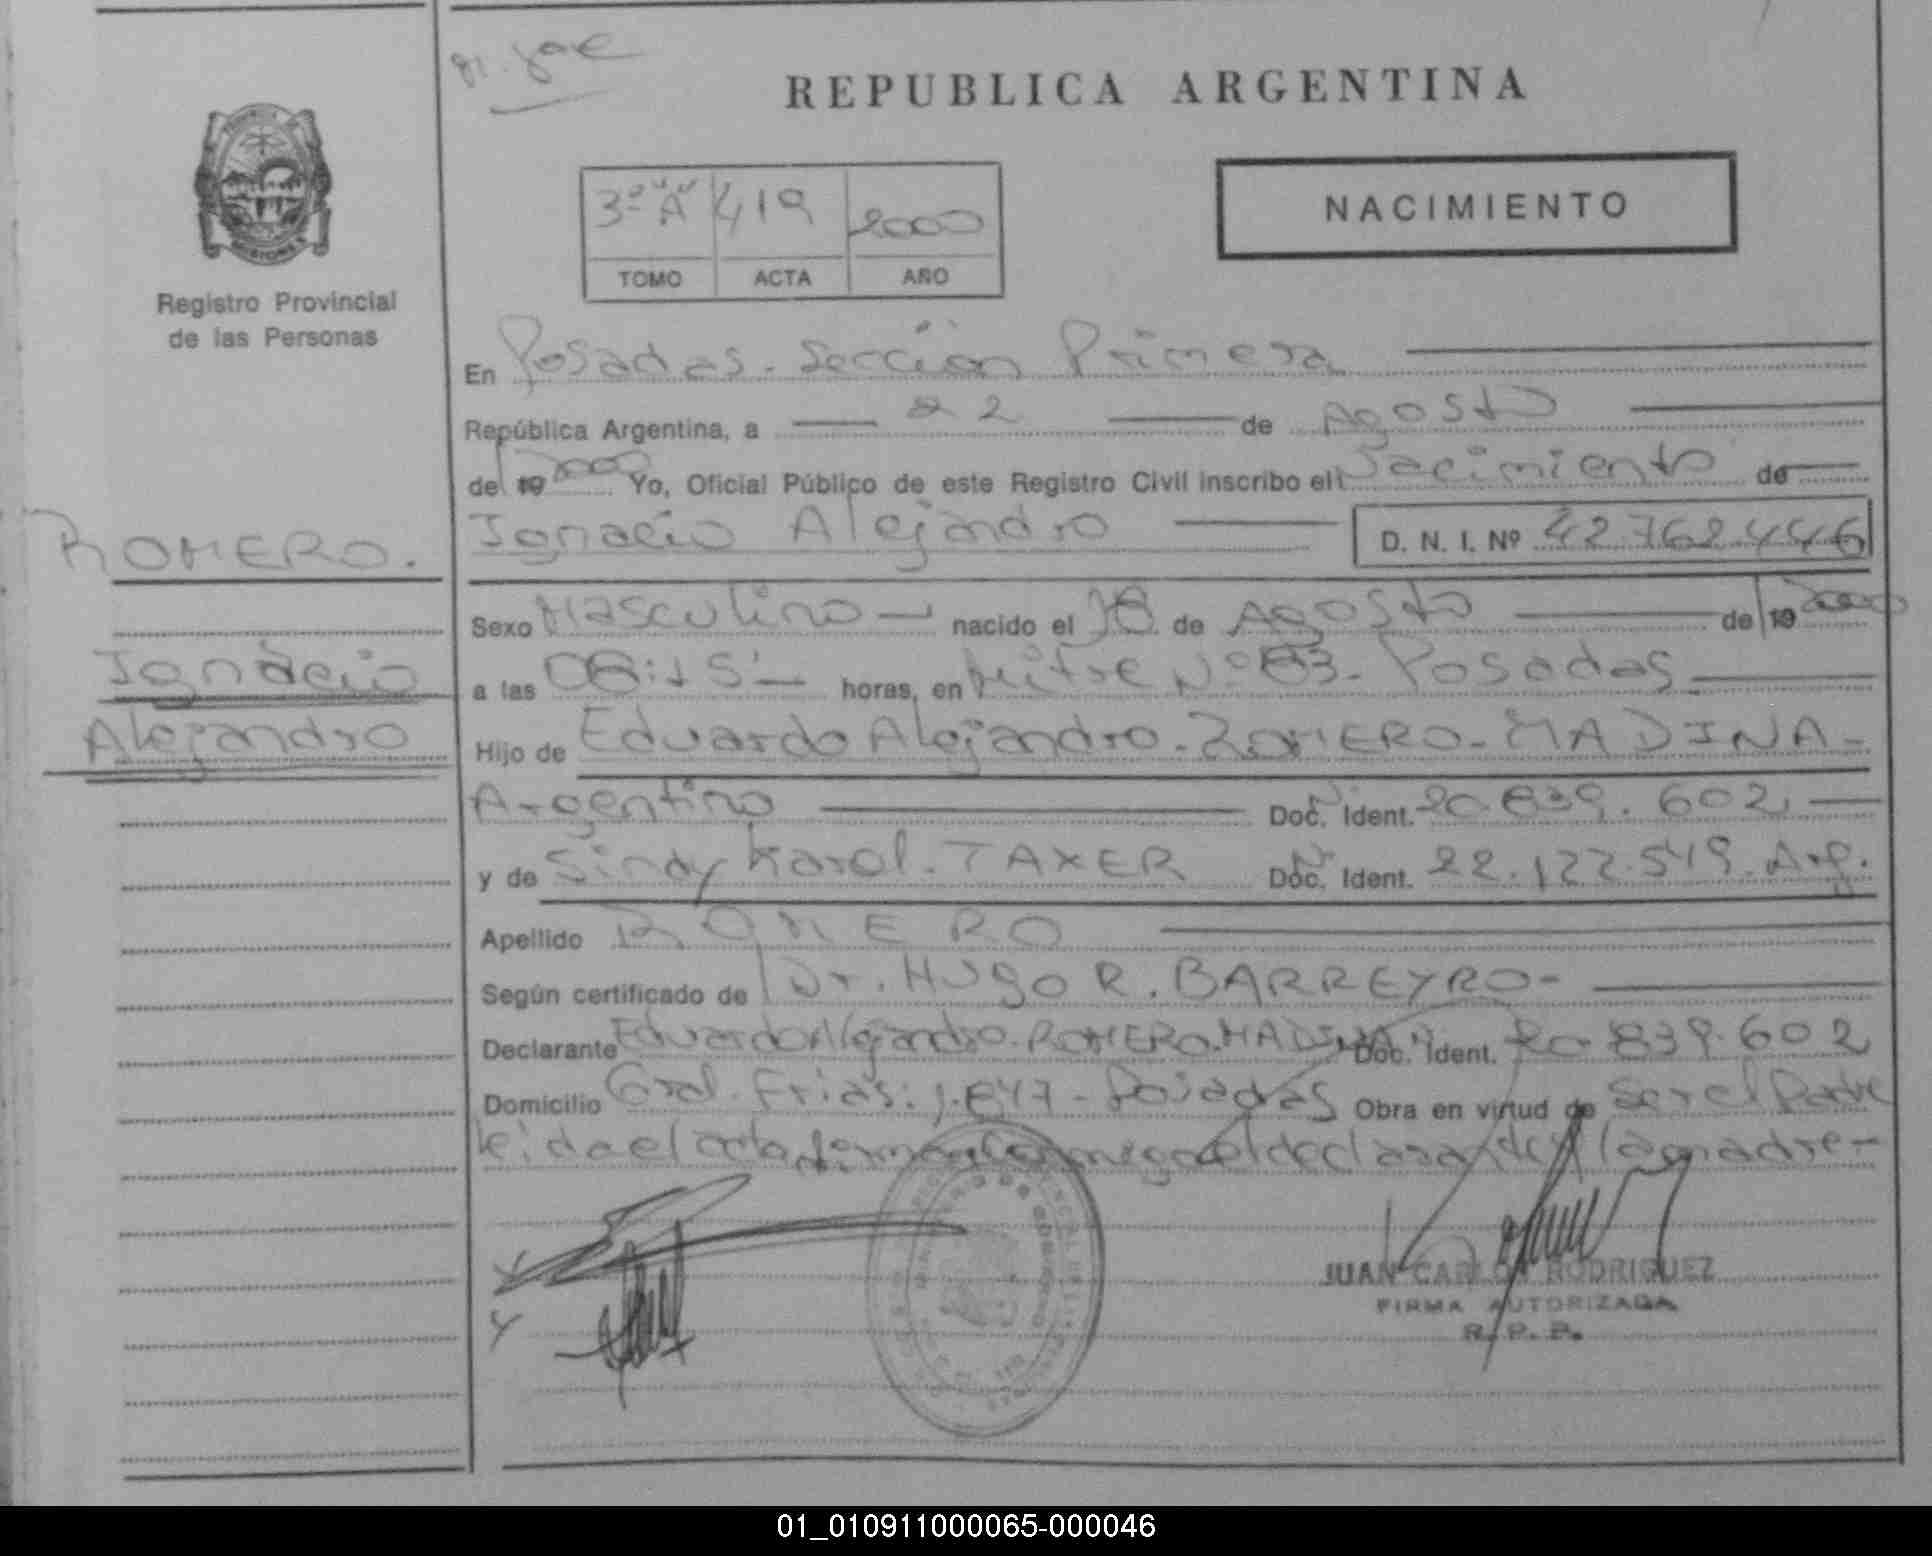 REPUBLICA ARGENTINA
NACIMIENTO
3º "A" 419 2000
TOMO ACTA AÑO
Registro Provincial
de las Personas
En Posadas. Sección Primera
República Argentina, a 22 de Agosto
de 19 2000 Yo, Oficial Público de este Registro Civil inscribo el Nacimiento de
Ignacio Alejandro D. N. I. Nº 42.762.446
ROMERO.
Ignacio
Alejandro
Sexo Masculino nacido el 18 de Agosto de 19 2000
a las 08:15'- horas, en Mitre Nº 83- Posadas
Hijo de Eduardo Alejandro - ROMERO - MADINA -
Argentino Doc. Ident. 20.839.602
y de Sindy Karol - TAXER Doc. Ident. 22.122.519. Arg.
Apellido ROMERO
Según certificado de Dr. HUGO R. BARREYRO-
Declarante Eduardo Alejandro. ROMERO. MADINA Doc. Ident. 20.839.602
Domicilio Gral. Frias: 1.847 - Posadas Obra en virtud de Ser el Padre
Leida el acta firman conmigo el declarante y la madre-
JUAN CARLOS RODRIGUEZ
FIRMA AUTORIZADA
R. P. P.
01_010911000065-000046